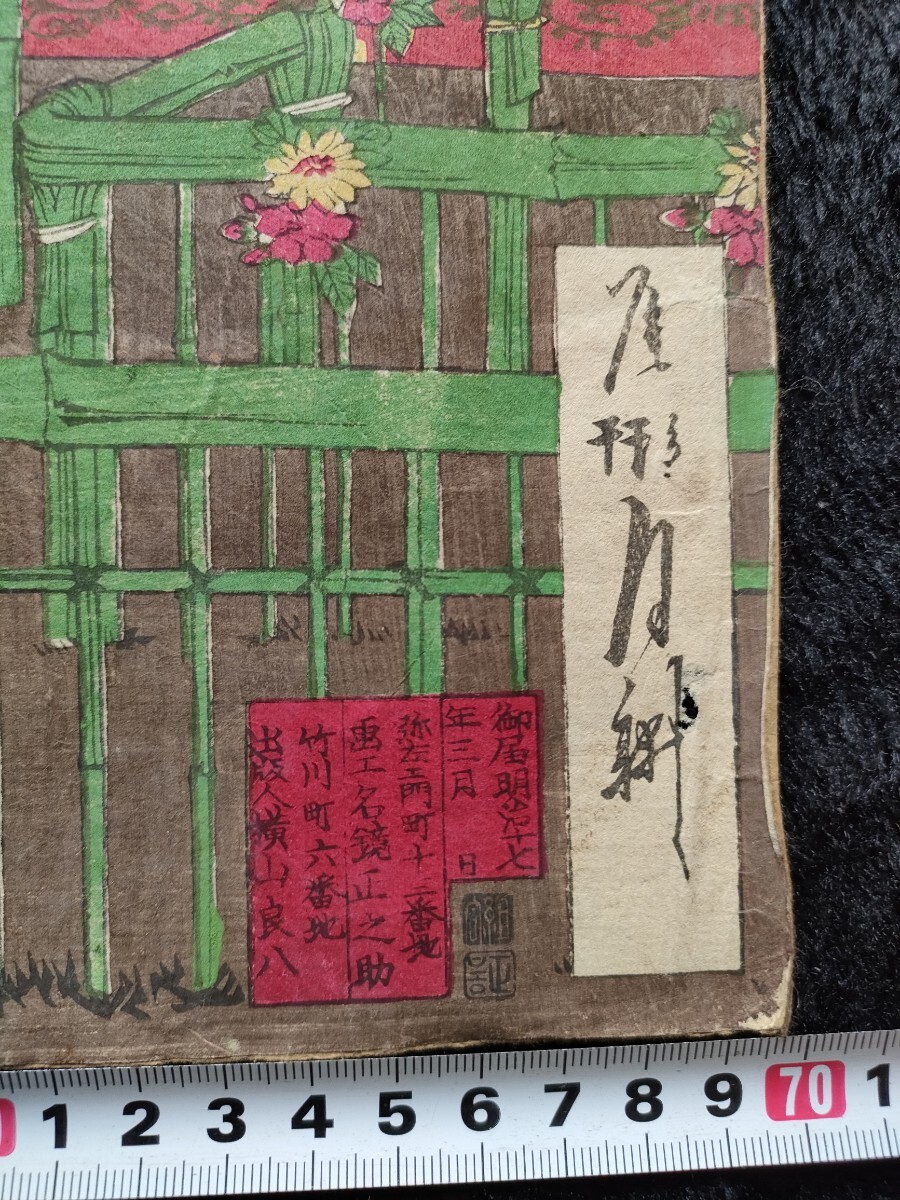 尾形月耕
御届明治十七
年三月　日
弥左エ門町十二番地
画工名鏡正之助
竹川町六番地
出版人横山良八
1 2 3 4 5 6 7 8 9 70 1